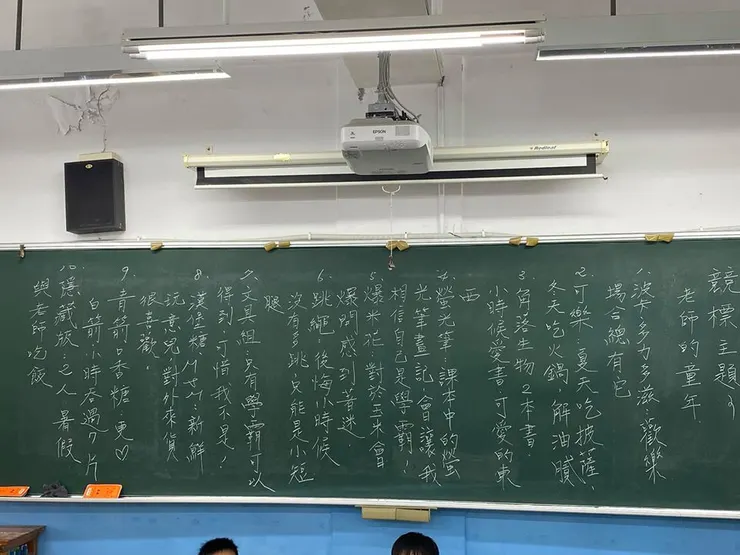 EPSON
競標主題:
老師的童年
1.波卡多力多滋:歡樂
場合總有它
2.可樂:夏天吃披薩、
冬天吃火鍋 解油膩
3.角落生物 2本書:
小時候愛書 可愛的東
西
4.螢光筆:課本中的螢
光筆畫記 會讓我
相信自己是學霸!
5.爆米花:對於玉米會
爆開感到著迷
6.跳繩:後悔小時候
沒有多跳 只能是小短
腿
7.文具組:只有學霸可以
得到 可惜我不是!
8.漢堡糖:新鮮
玩意兒 對外來貨
很喜歡.
9.青箭口香糖:更♡
白箭 小時吞過7片
10.隱藏版:2人 暑假
與老師吃飯